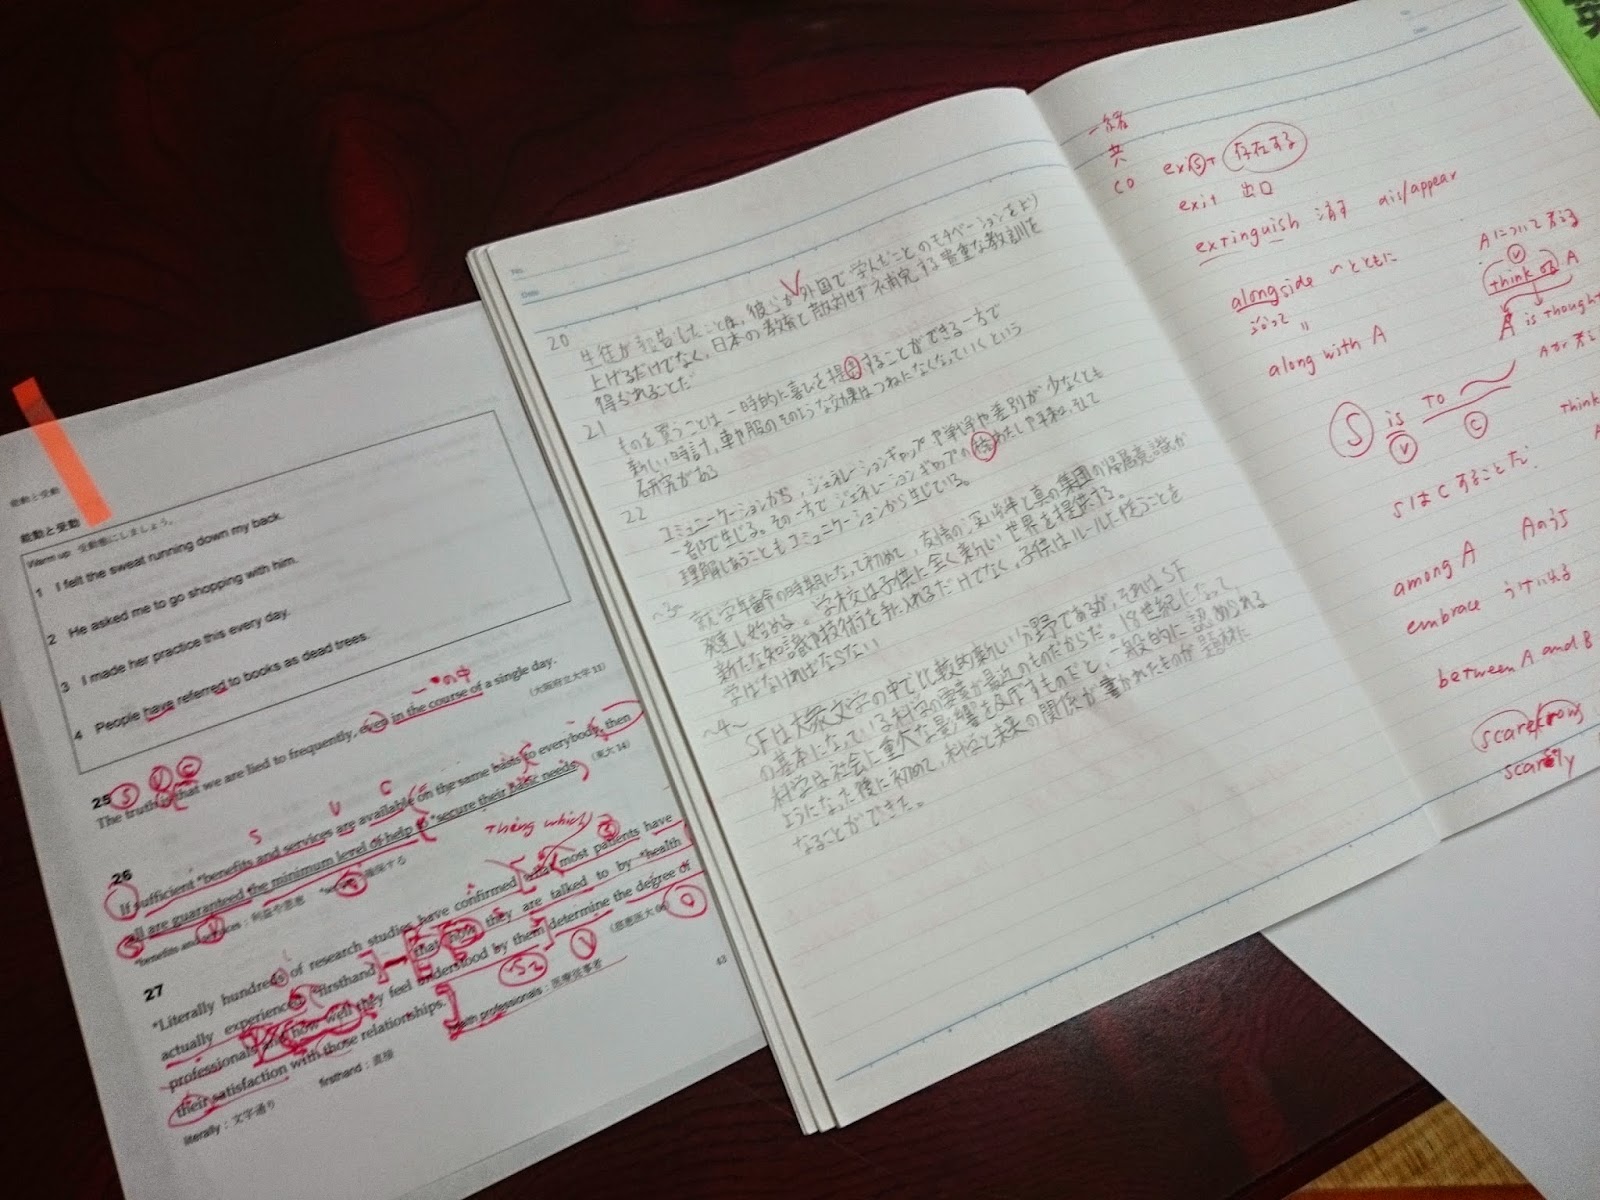 能動と受動
能動と受動
Warm up 受動態にしましょう。
1 I felt the sweat running down my back.
2 He asked me to go shopping with him.
3 I made her practice this every day.
4 People have referred to books as dead trees.
25
The truth is that we are lied to frequently, even in the course of a single day.
(大阪府立大学 13)
〜の中
S V C
26
If sufficient *benefits and services are available on the same basis to everybody, then
all are guaranteed the minimum level of help to *secure their basic needs.
S V C
*benefits and services : 利益や恩恵
確保する
27
thing which
*Literally hundreds of research studies have confirmed what most patients have
actually experienced *firsthand that how they are talked to by *health
professionals and how well they feel understood by them determine the degree of
their satisfaction with those relationships.
(慈恵医大
literally : 文字通り
firsthand : 直接
health professionals : 医療従事者
43
20
生徒が報告したことは、彼らが外国で学んだことのモチベーションをより
上げるだけでなく、日本の教素と敵対せず補完する貴重な教訓を
得られることだ
21
ものを買うことは一時的に喜びを提することができる一方で
新しい時計、車や服のそのような効果はつねになくなっていくという
研究がある
22
コミュニーケーションから、ジェネレーションギャップや戦争や差別が少なくとも
一部で生じる。その一方でジェネレーションギャップの橋わたしや平和、そして
理解しあうこともコミュニケーションから生じている。
〜3〜
就学年齢の時期になって初めて、友情の深い絆と真の集団の帰属意識が
発達し始める。学校は子供に全く新しい世界を提供する。
新たな知識や技術を手に入れるだけでなく、子供はルールに従うことを
学ばなければならない
〜4〜
SFは大衆文学の中で比較的新しい分野であるが、それはSF
の基本になっている科学の要素が最近のものだからだ。18世紀になって
科学は社会に重大な影響を及ぼすものだと、一般的に認められる
ようになった後に初めて、科学と未来の関係が書かれたものが題材に
なることができた。
一緒
共
co
exist 存在する
exit 出口
extinguish 消す dis/appear
alongside 〜とともに
along with A
Aについて考える
V
think of A
A is thought
S is to
V C
SはCすることだ
think
among A Aのうち
embrace うけいれる
between A and B
scarecrow
scarely